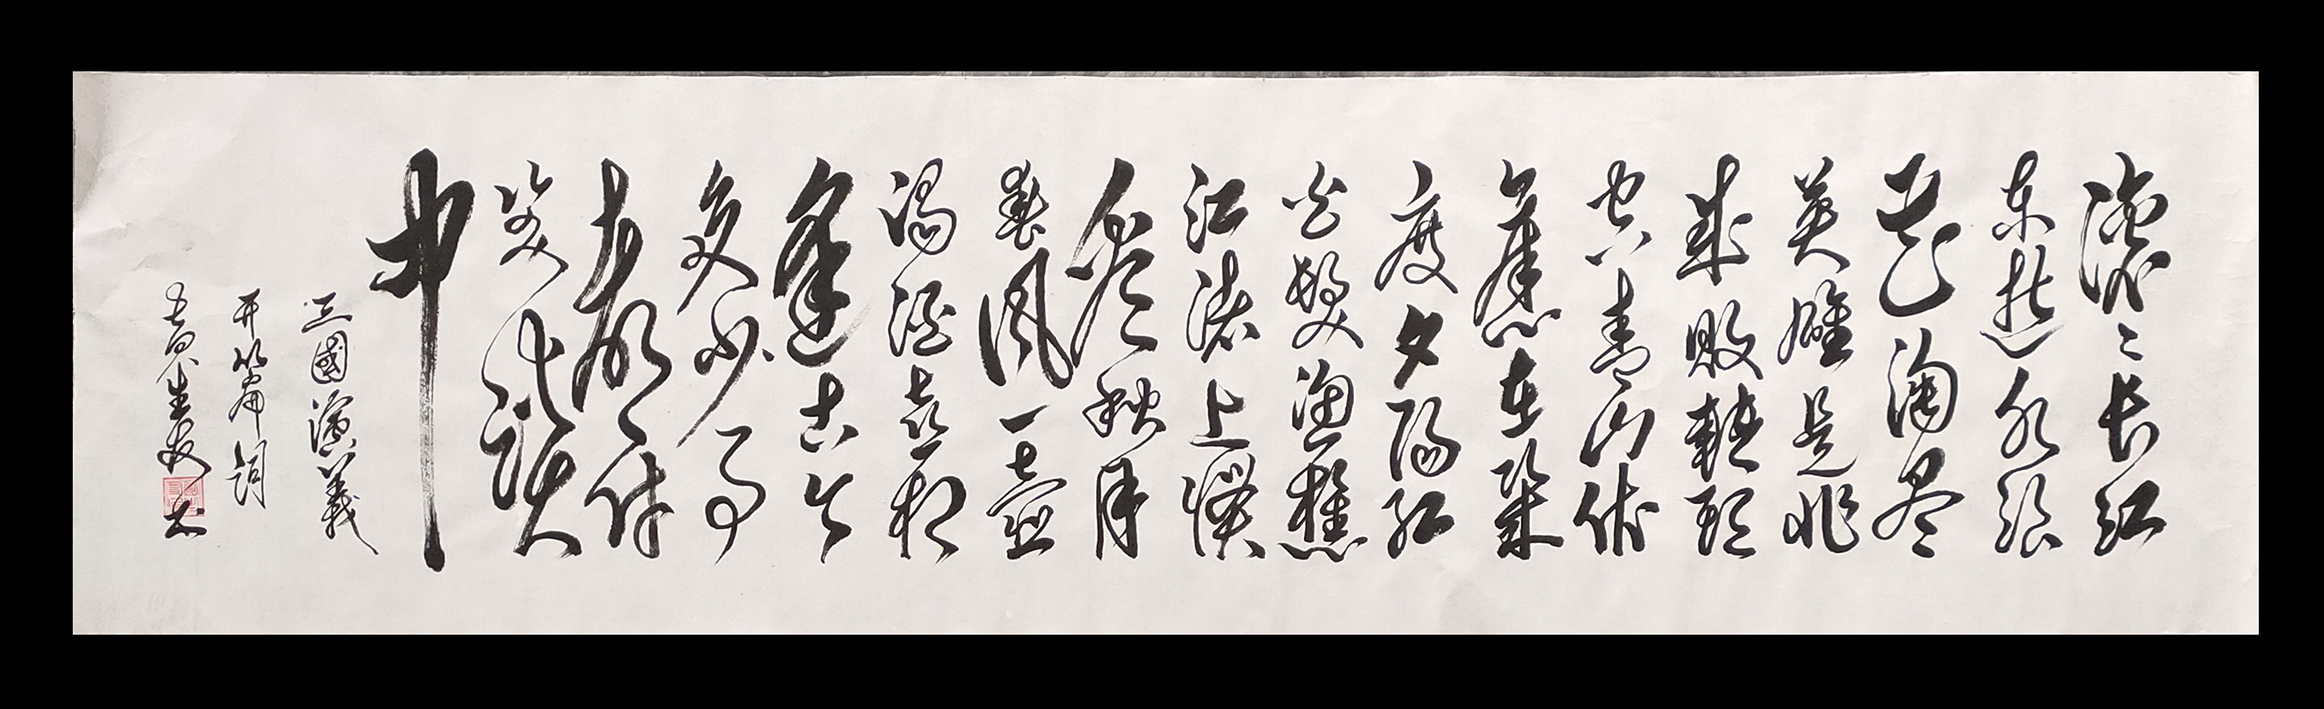 滚々长江
东逝水浪
花淘尽
英雄是非
成败轉头
空青山依
舊在幾
度夕阳红
白髮渔樵
江渚上惯
看秋月
春风一壶
浊酒喜相
逢古今
多少事
都付
笑谈
中
三國演義
开篇词
生友